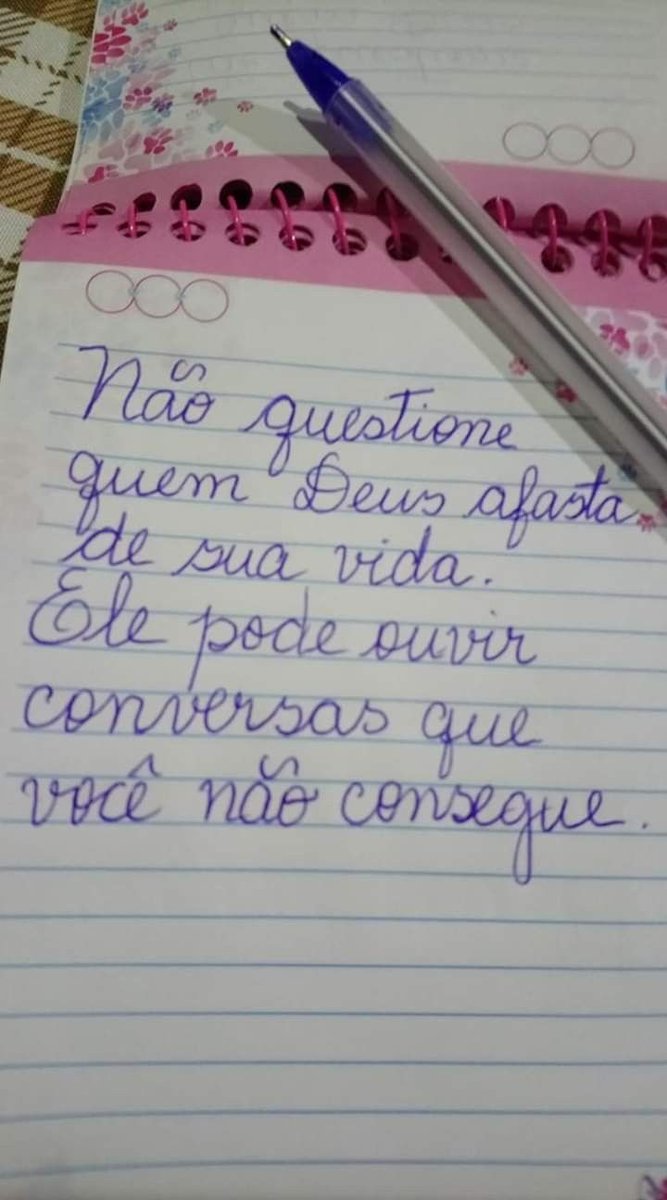 Não questione
quem Deus afasta
de sua vida.
Ele pode ouvir
conversas que
você não consegue.